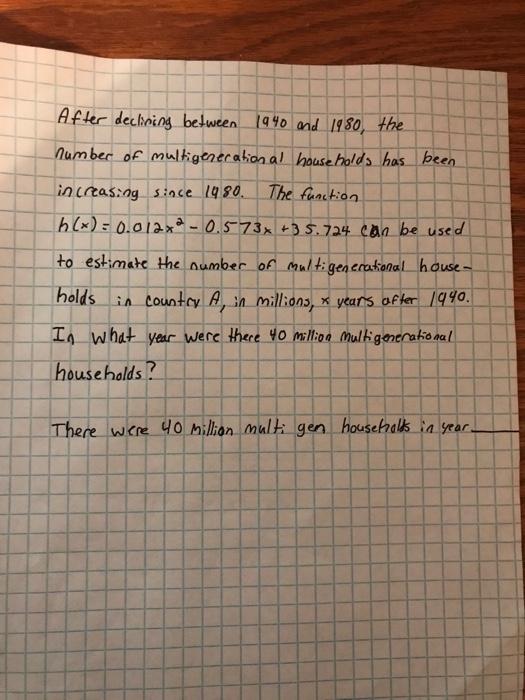 After declining between 1940 and 1980, the
number of multigenerational households has been
increasing since 1980. The function
h(x) = 0.012x² - 0.573x +35.724 can be used
to estimate the number of multigenerational house-
holds in country A, in millions, x years after 1940.
In what year were there 40 million multigenerational
households?
There were 40 million multi gen households in year